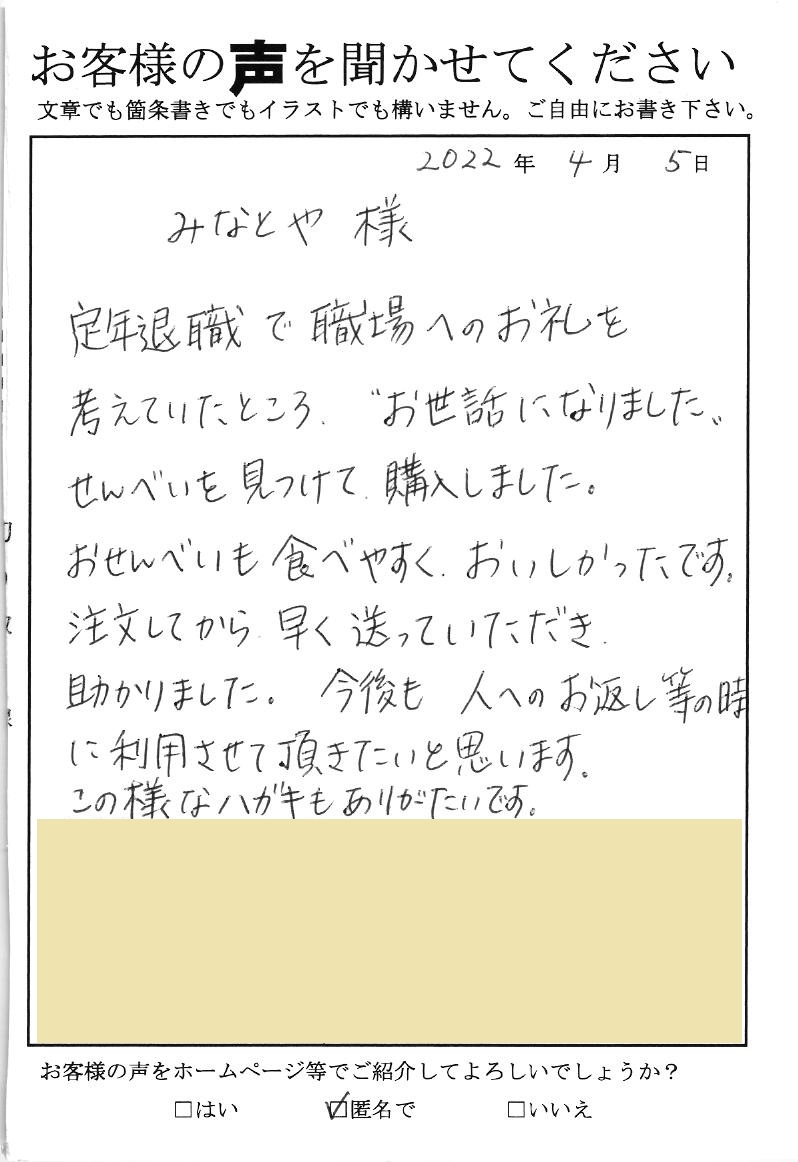 お客様の声を聞かせてください
文章でも箇条書きでもイラストでも構いません。ご自由にお書き下さい。
2022年 4月 5日
みなとや 様
定年退職で職場へのお礼を
考えていたところ、〝お世話になりました〟
せんべいを見つけて、購入しました。
おせんべいも食べやすく、おいしかったです。
注文してから、早く送っていただき、
助かりました。 今後も 人へのお返し等の時
に利用させて頂きたいと思います。
この様なハガキもありがたいです。
お客様の声をホームページ等でご紹介してよろしいでしょうか？
□はい ☑匿名で □いいえ